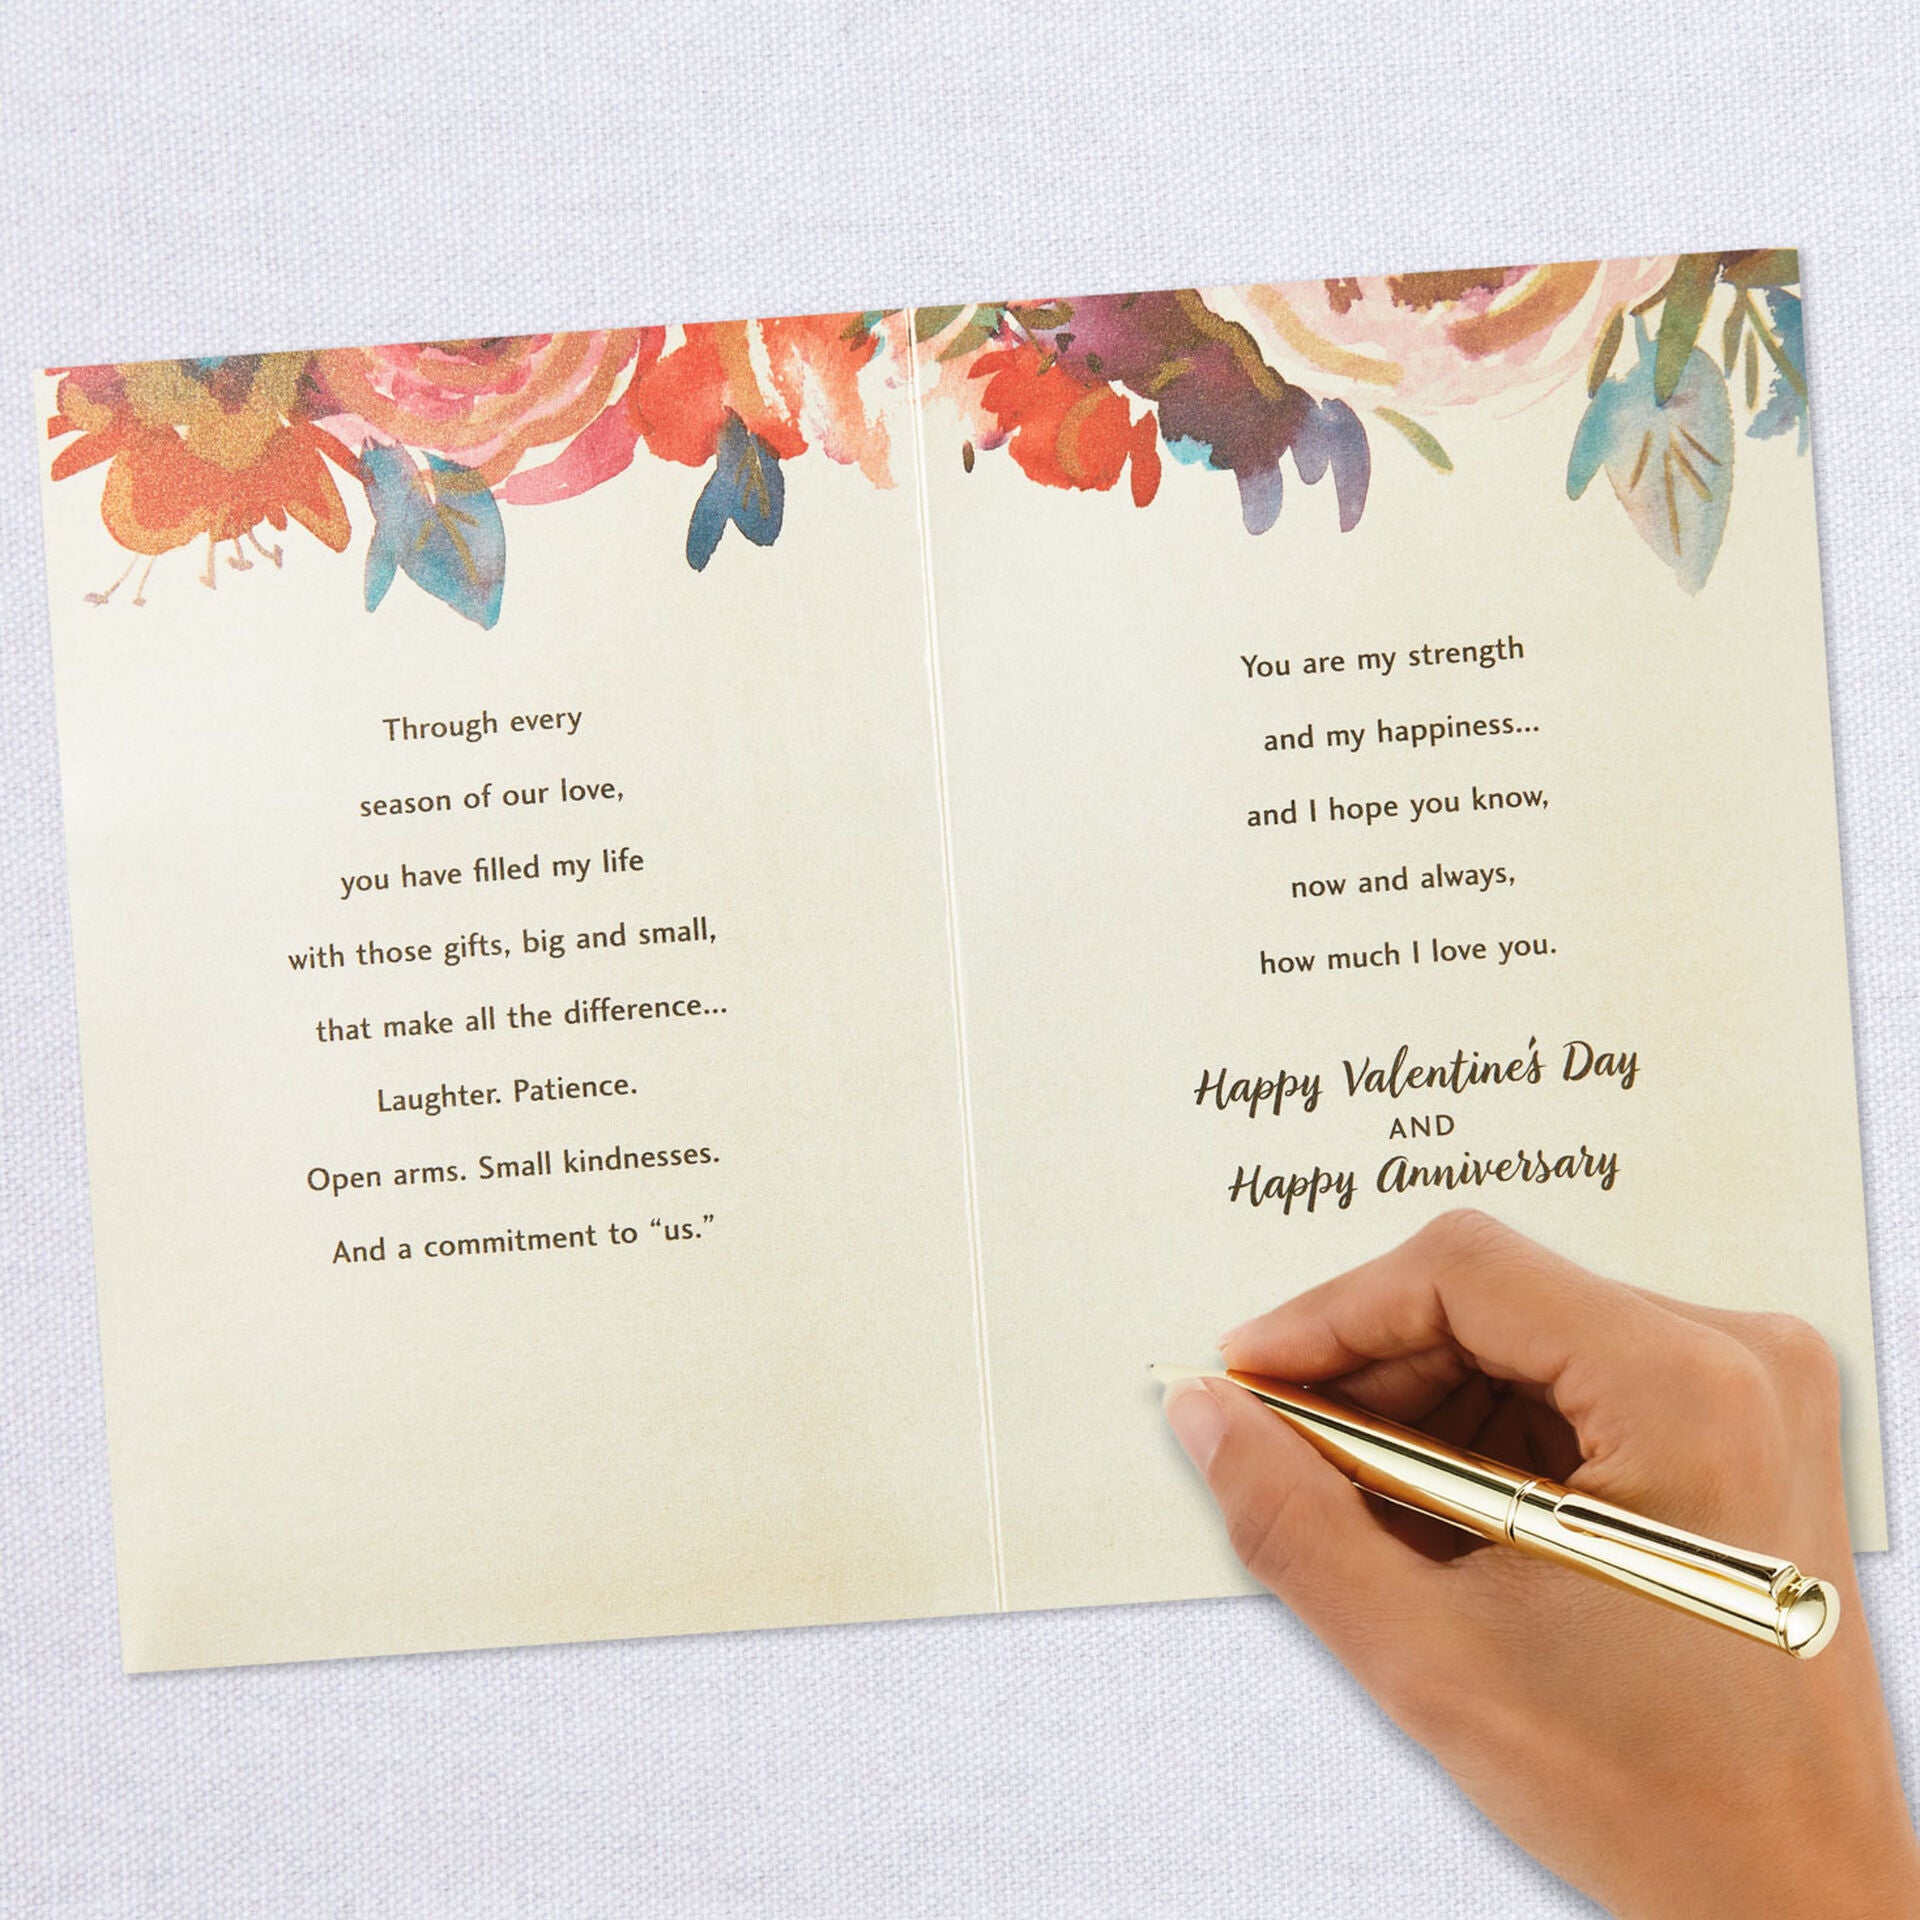 Through every
season of our love,
you have filled my life
with those gifts, big and small,
that make all the difference...
Laughter. Patience.
Open arms. Small kindnesses.
And a commitment to “us.”
You are my strength
and my happiness...
and I hope you know,
now and always,
how much I love you.
Happy Valentine's Day
AND
Happy Anniversary